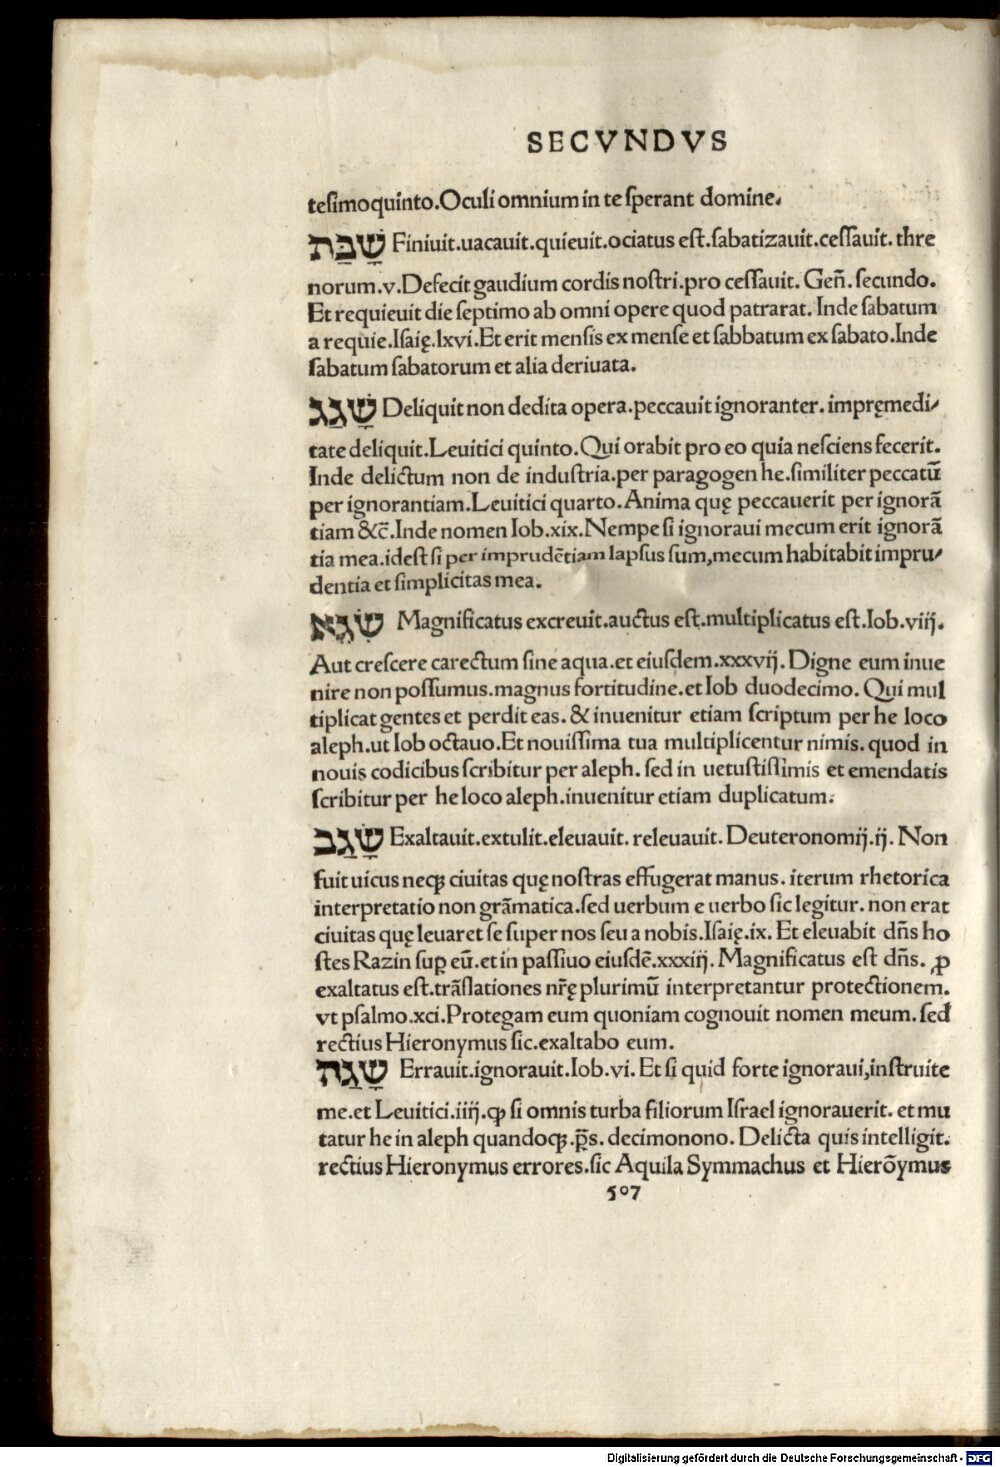 SECVNDVS
tesimoquinto.Oculi omnium in te sperant domine.
שָׁבַת Finiuit.uacauit.quieuit.ociatus est.sabatizauit.cessauit. thre
norum.v.Defecit gaudium cordis nostri.pro cessauit. Geñ. secundo.
Et requieuit die septimo ab omni opere quod patrarat. Inde sabatum
a requie.Isaię.lxvi.Et erit mensis ex mense et sabbatum ex sabato.Inde
sabatum sabatorum et alia deriuata.
שָׁגַג Deliquit non dedita opera.peccauit ignoranter. impręmedi/
tate deliquit.Leuitici quinto.Qui orabit pro eo quia nesciens fecerit.
Inde delictum non de industria.per paragogen he.similiter peccatū
per ignorantiam.Leuitici quarto.Anima quę peccauerit per ignorā
tiam &c̄.Inde nomen Iob.xix.Nempe si ignoraui mecum erit ignorā
tia mea.idest si per imprudētiam lapsus sum,mecum habitabit impru/
dentia et simplicitas mea.
שָׂגָא Magnificatus excreuit.auctus est.multiplicatus est.Iob.viij.
Aut crescere carectum sine aqua.et eiusdem.xxxvij. Digne eum inue
nire non possumus.magnus fortitudine.et Iob duodecimo. Qui mul
tiplicat gentes et perdit eas. & inuenitur etiam scriptum per he loco
aleph.ut Iob octauo.Et nouissima tua multiplicentur nimis. quod in
nouis codicibus scribitur per aleph. sed in uetustissimis et emendatis
scribitur per he loco aleph.inuenitur etiam duplicatum.
שָׂגַב Exaltauit.extulit.eleuauit. releuauit. Deuteronomij.ij. Non
fuit uicus neqꝫ ciuitas quę nostras effugerat manus. iterum rhetorica
interpretatio non grāmatica.sed uerbum e uerbo sic legitur. non erat
ciuitas quę leuaret se super nos seu a nobis.Isaię.ix. Et eleuabit dñs ho
stes Razin suꝑ eū.et in passiuo eiusdē.xxxiij. Magnificatus est dñs. ꝓ
exaltatus est.trāslationes nr̄ę plurimū interpretantur protectionem.
vt psalmo.xci.Protegam eum quoniam cognouit nomen meum. sed
rectius Hieronymus sic.exaltabo eum.
שָׁגַה Errauit.ignorauit.Iob.vi. Et si quid forte ignoraui,instruite
me.et Leuitici.iiij.ꝙ si omnis turba filiorum Israel ignorauerit. et mu
tatur he in aleph quandoqꝫ.p̄s. decimonono. Delicta quis intelligit.
rectius Hieronymus errores.sic Aquila Symmachus et Hierōymus
507
Digitalisierung gefördert durch die Deutsche Forschungsgemeinschaft - DFG